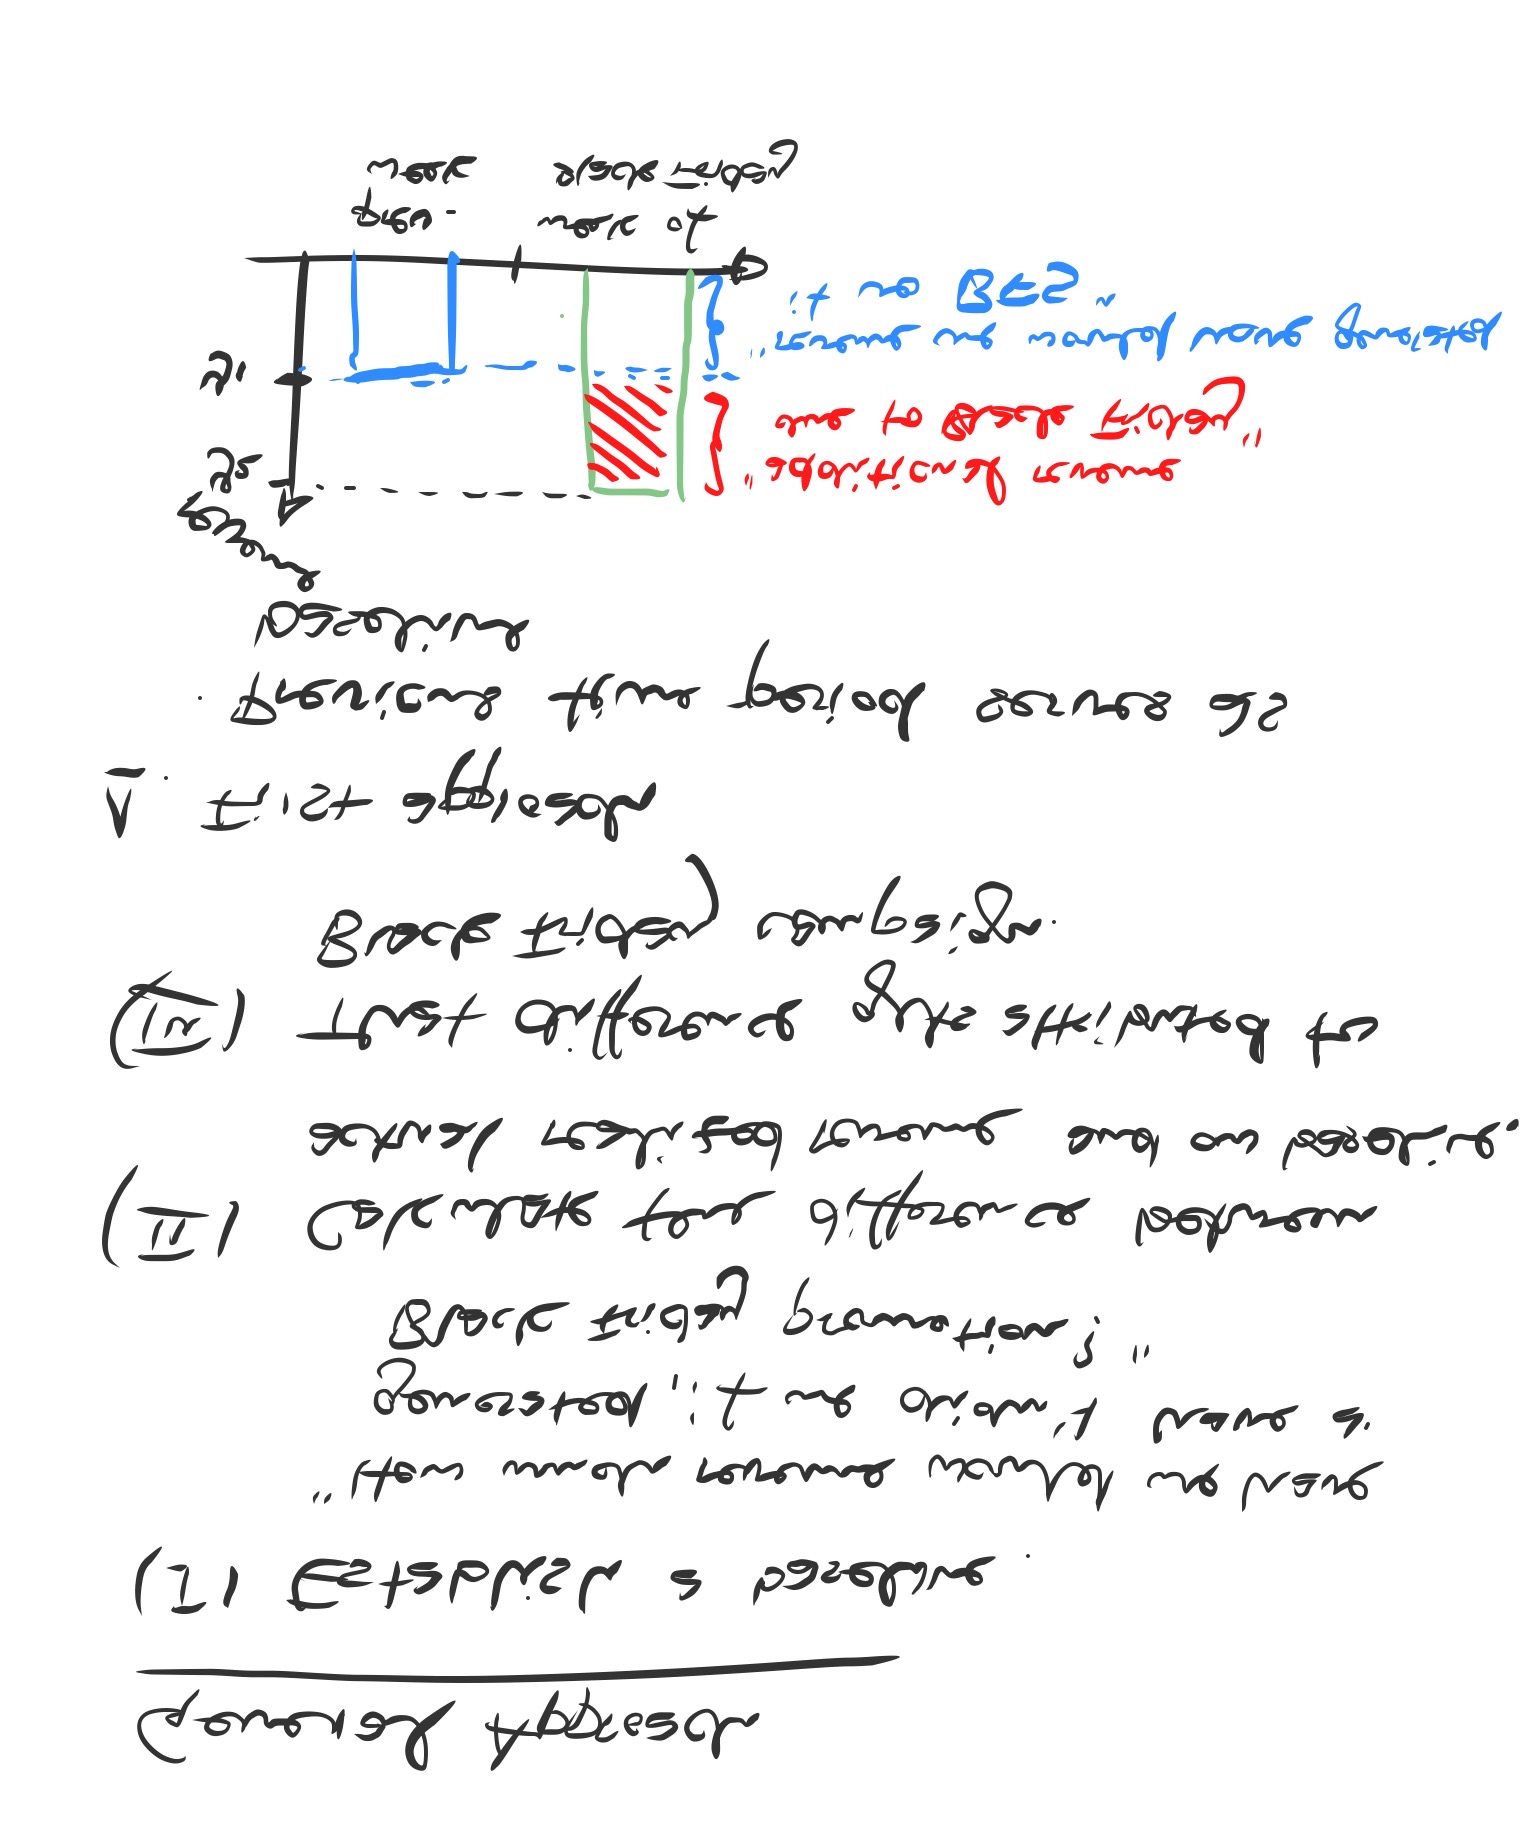 General Approach
(I) Establish a baseline.
"How much revenue would we have
generated, if we didn't have a
Black Friday promotion?"
(II) Calculate the difference between
actual realized revenue and our baseline.
(III) That difference gets attributed to
Black Friday campaign.
1. First approach
Previous time period serves as
baseline
revenue
y2
"additional revenue
due to Black Friday"
y1
"revenue we would have generated
if no BFS"
prev. week of
week Black Friday